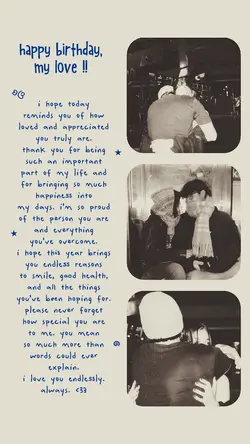 happy birthday,
my love !!
i hope today
reminds you of how
loved and appreciated
you truly are.
thank you for being
such an important
part of my life and
for bringing so much
happiness into
my days. i'm so proud
of the person you are
and everything
you've overcome.
i hope this year brings
you endless reasons
to smile, good health,
and all the things
you've been hoping for.
please never forget
how special you are
to me. you mean
so much more than
words could ever
explain.
i love you endlessly.
always. <33